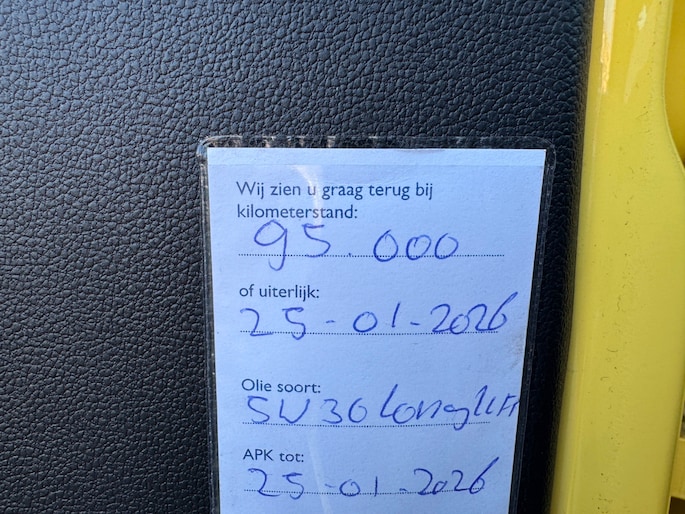 Wij zien u graag terug bij
kilometerstand:
95.000
of uiterlijk:
25-01-2026
Olie soort:
5W30 Longlife
APK tot:
25-01-2026